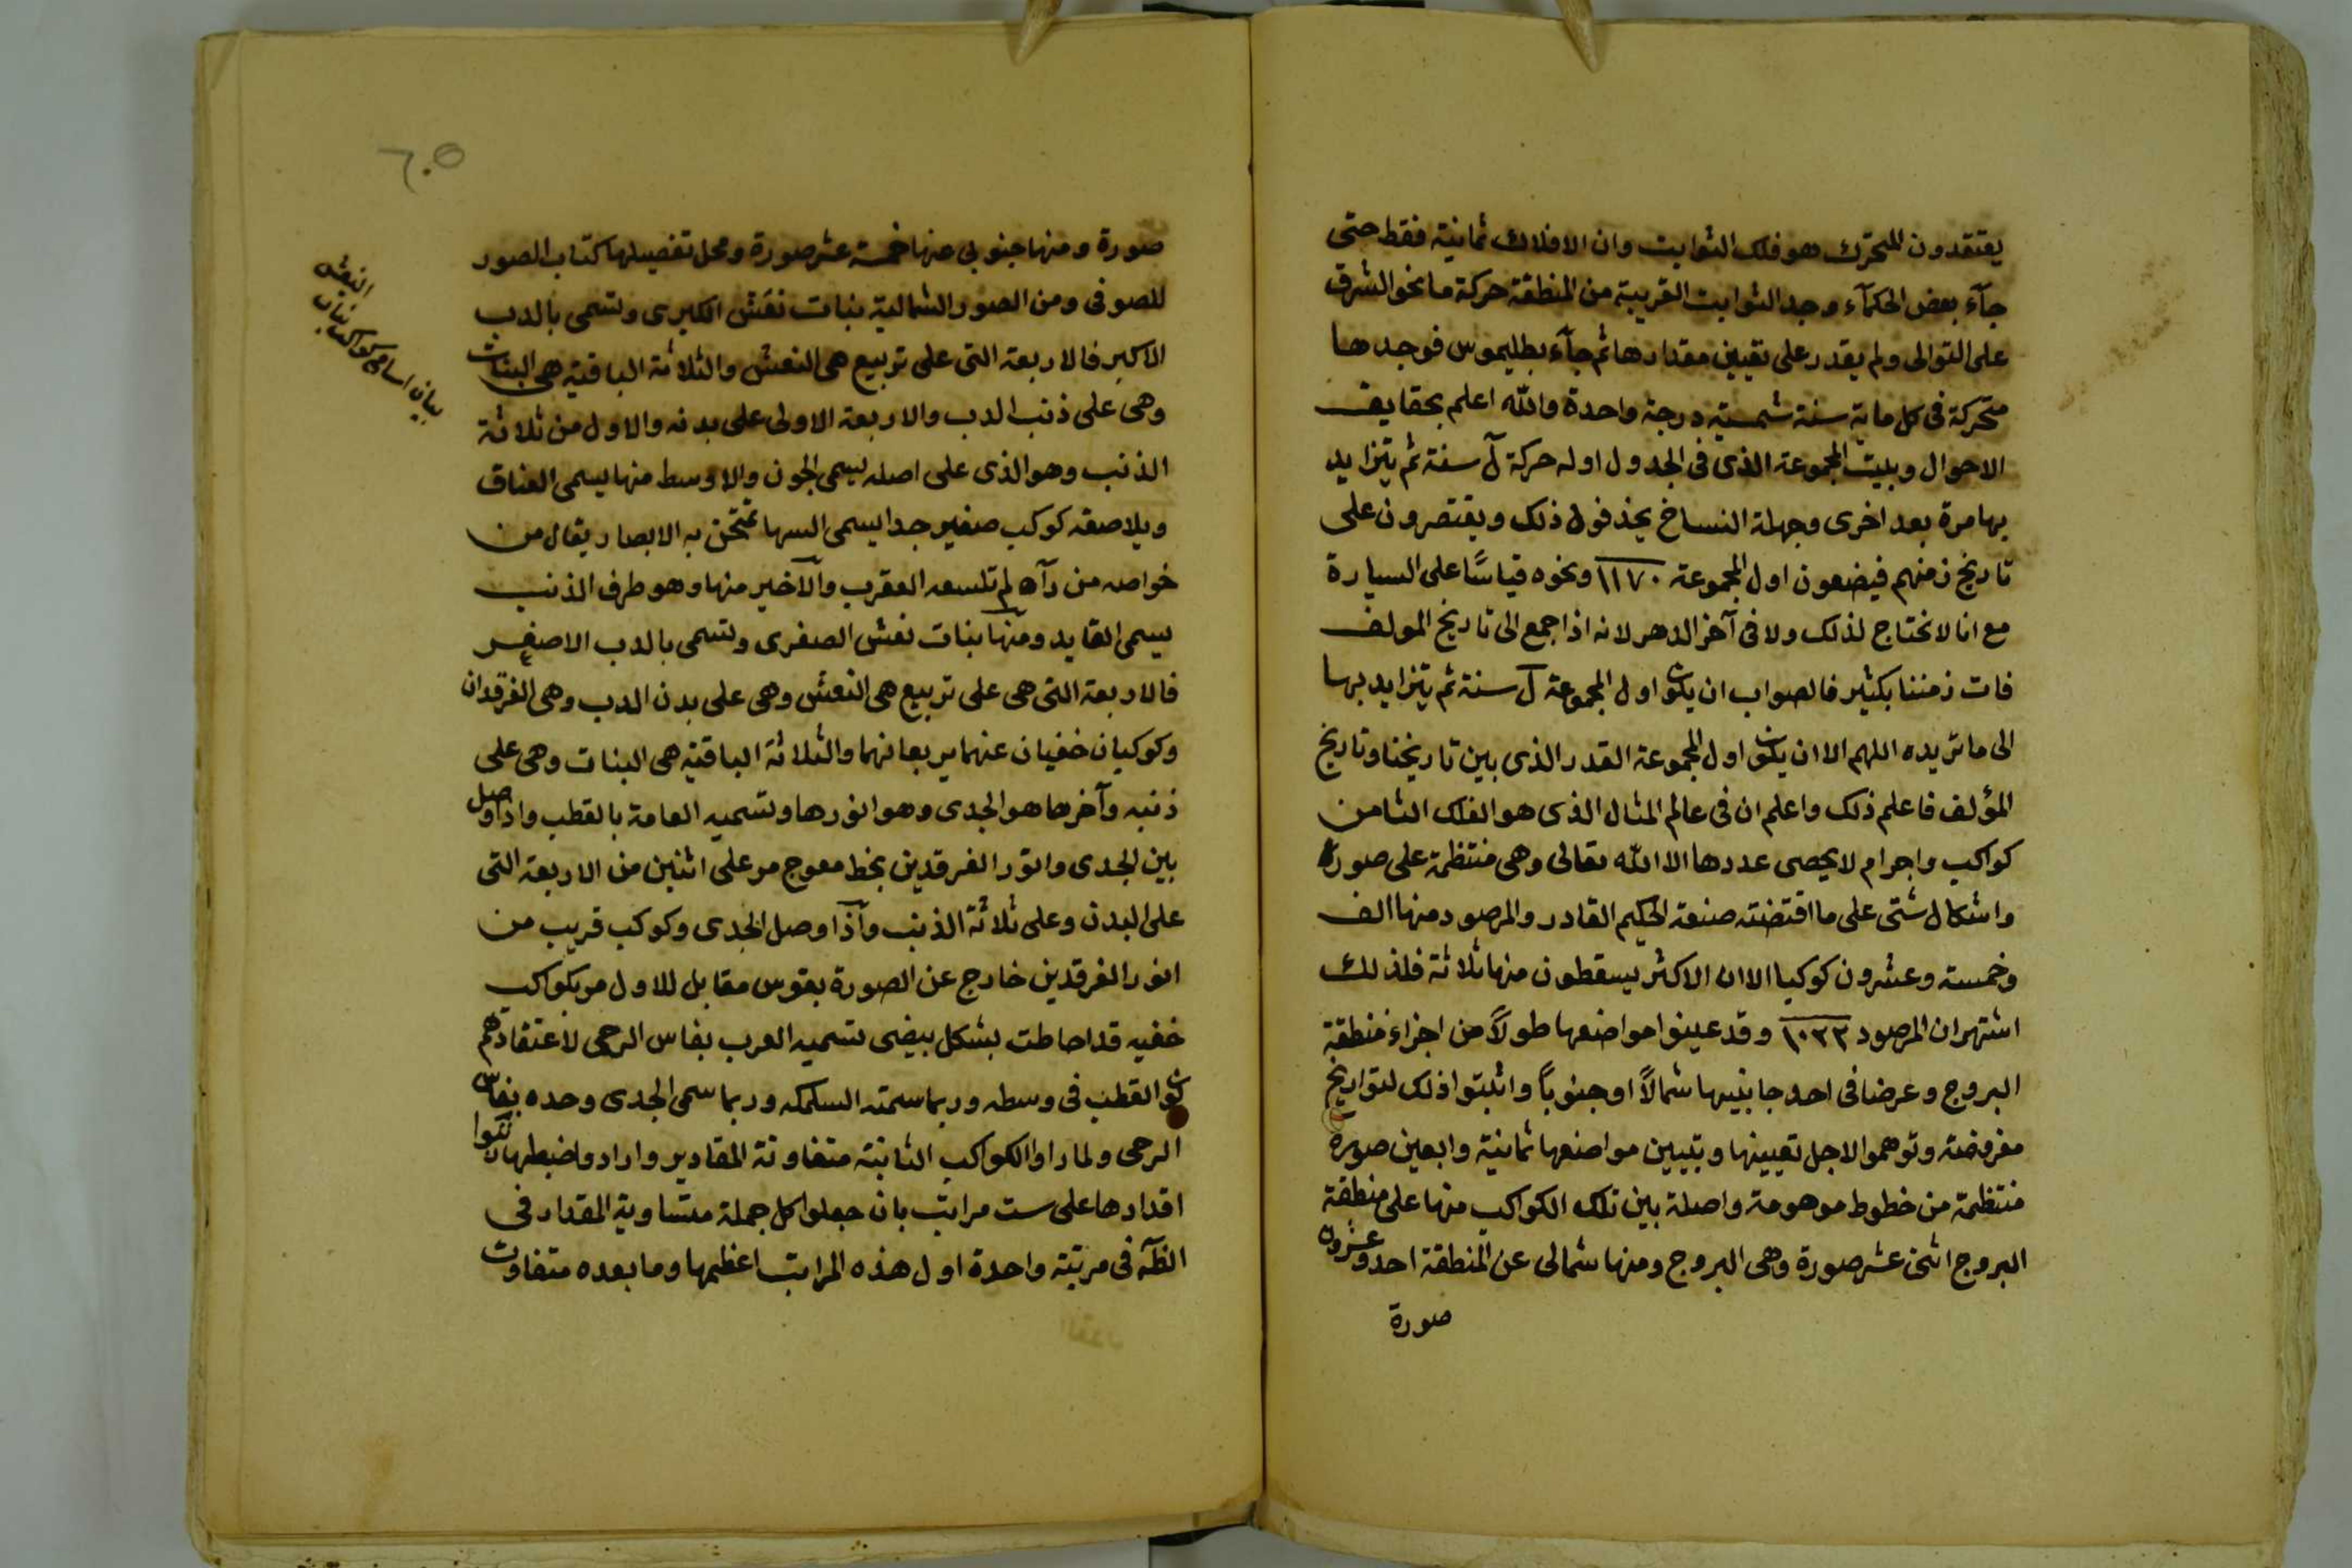 يعتقدون المحرك هو فلك الثوابت وان الافلاك ثمانية فقط حتى
جآء بعض الحكمآء وجد الثوابت القريبة من المنطقة حركة ما نحو الشرق
على التوالى ولم يقدر على تعيين مقدارها ثم جآء بطليموس فوجدها
متحركة فى كل ماية سنة شمسية درجة واحدة والله اعلم بحقايق
الاحوال وبليت المجموعة الذى فى الجدول اوله حركة ل سنة ثم يتزايد
بها مرة بعد اخرى وجهلة النساخ يحذفون ذلك ويقتصرون على
تاريخ زمنهم فيضعون اول المجموعة ١١٧٠ ونحوه قياسًا على السيارة
مع انا لا نحتاج لذلك ولا فى آخر الدهر لانه اذا جمع الى تاريخ المولف
فات زمننا بكثير فالصواب ان يكون اول المجموعة ل سنة ثم يتزايد بها
الى ما تريده اللهم الا ان يكون اول المجموعة القدر الذى بين تاريخنا وتاريخ
المؤلف فاعلم ذلك واعلم ان فى عالم المثال الذى هو الفلك الثامن
كواكب واجرام لا يحصى عددها الا الله تعالى وهى منتظمة على صورة
واشكال شتى على ما اقتضته صنعة الحكيم القادر والمرصود منها الف
وخمسة وعشرون كوكبا الا ان الاكثر يسقطون منها ثلاثة فلذلك
اشتهر ان المرصود ١٠٢٢ وقد عينوا مواضعها طولاً من اجزاء منطقة
البروج وعرضا فى احد جانبيها شمالاً او جنوباً واثبتوا ذلك لتواريخ
مفروضة وتوهموا لاجل تعيينها وتبيين مواضعها ثمانية واربعين صورة
منتظمة من خطوط موهومة واصلة بين تلك الكواكب منها على منطقة
البروج اثنى عشر صورة وهى البروج ومنها شمالى عن المنطقة احد وعشرون
صورة
٦٠٥
صورة ومنها جنوبى عنها خمسة عشر صورة ومحل تفصيلها كتاب الصور
للصوفى ومن الصور الشمالية بنات نعش الكبرى وتسمى بالدب
الاكبر فالاربعة التى على تربيع هى النعش والثلاثة الباقية هى البنات
وهى على ذنب الدب والاربعة الاولى على بدنه والاول من ثلاثة
الذنب وهو الذى على اصله يسمى الجون والاوسط منها يسمى العناق
ويلاصقه كوكب صغير جدا يسمى السها تمتحن به الابصار يقال من
خواصه من رآه لم تلسعه العقرب والآخير منها وهو طرف الذنب
يسمى القايد ومنها بنات نعش الصغرى وتسمى بالدب الاصغر
فالاربعة التى هى على تربيع هى النعش وهى على بدن الدب وهى الفرقدان
وكوكبان خفيان عنهما يربعانهما والثلاثة الباقية هى البنات وهى على
ذنبه وآخرها هو الجدى وهو انورها وتسميه العامة بالقطب واذا وصل
بين الجدى وانور الفرقدين بخط معوج مر على اثنين من الاربعة التى
على البدن وعلى ثلاثة الذنب وآذا وصل الجدى وكوكب قريب من
انور الفرقدين خارج عن الصورة بقوس مقابل للاول مر بكواكب
خفيه قد احاطت بشكل بيضى تسميه العرب بفاس الرحى لاعتقادهم
كون القطب فى وسطه وربما سمته السمكه وربما سمى الجدى وحده بفاس
الرحى ولما راوا الكواكب الثابتة متفاوتة المقادير وارادوا ضبطها رتبوا
اقدارها على ست مراتب بان جعلوا كل جملة متساوية المقدار فى
النظر فى مرتبة واحدة اول هذه المراتب اعظمها وما بعده متفاوت
بيان اسامى كواكب بنات
النعش